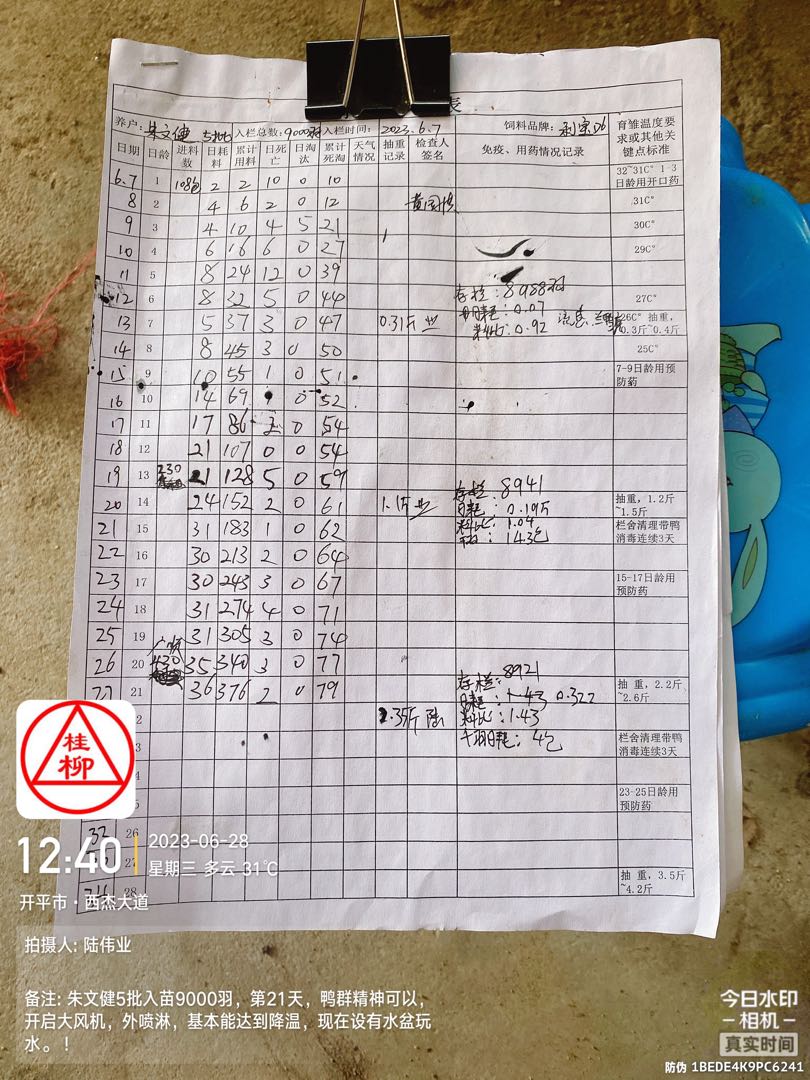 表
养户: 朱文健 5批 入栏总数: 9000羽 入栏时间: 2023.6.7 饲料品牌: 育雏温度要求或其他关键点标准
日期 日龄 进料数 日耗料 累计用料 日死亡 日淘汰 累计死淘 天气情况 抽重记录 检查人签名 免疫、用药情况记录
6.7 1 108包 2 2 10 0 10 32~31C° 1-3日龄用开口药
8 2 4 6 2 0 12 31C°
9 3 4 10 4 5 21 30C°
10 4 6 16 6 0 27 29C°
11 5 8 24 12 0 39
12 6 8 32 5 0 44 存栏: 8988羽 27C°
13 7 5 37 3 0 47 0.31斤 业 日耗: 0.07 料比: 0.92 26C° 抽重, 0.3斤~0.4斤
14 8 8 45 3 0 50 25C°
15 9 10 55 1 0 51 7-9日龄用预防药
16 10 14 69 0 52
17 11 17 86 2 0 54
18 12 21 107 0 0 54
19 13 230 21 128 5 0 59
20 14 24 152 2 0 61 1.1斤 业 存栏: 8941 日耗: 0.19斤 料比: 1.04 143包 抽重, 1.2斤~1.5斤
21 15 31 183 1 0 62 栏舍清理带鸭消毒连续3天
22 16 30 213 2 0 64
23 17 30 243 3 0 67 15-17日龄用预防药
24 18 31 274 4 0 71
25 19 31 305 3 0 74
26 20 430 35 340 3 0 77
27 21 36 376 2 0 79 存栏: 8921 日耗: 1.43 0.322 抽重, 2.2斤~2.6斤
2 2.35斤 陆 料比: 1.43
3 千羽日耗: 4包 栏舍清理带鸭消毒连续3天
4
5 23-25日龄用预防药
26
27
28 抽重, 3.5斤~4.2斤
桂柳
12:40 2023-06-28
星期三 多云 31℃
开平市·西杰大道
拍摄人: 陆伟业
备注: 朱文健5批入苗9000羽，第21天，鸭群精神可以，
开启大风机，外喷淋，基本能达到降温，现在设有水盆玩
水。！
今日水印
相机
真实时间
防伪 1BEDE4K9PC6241